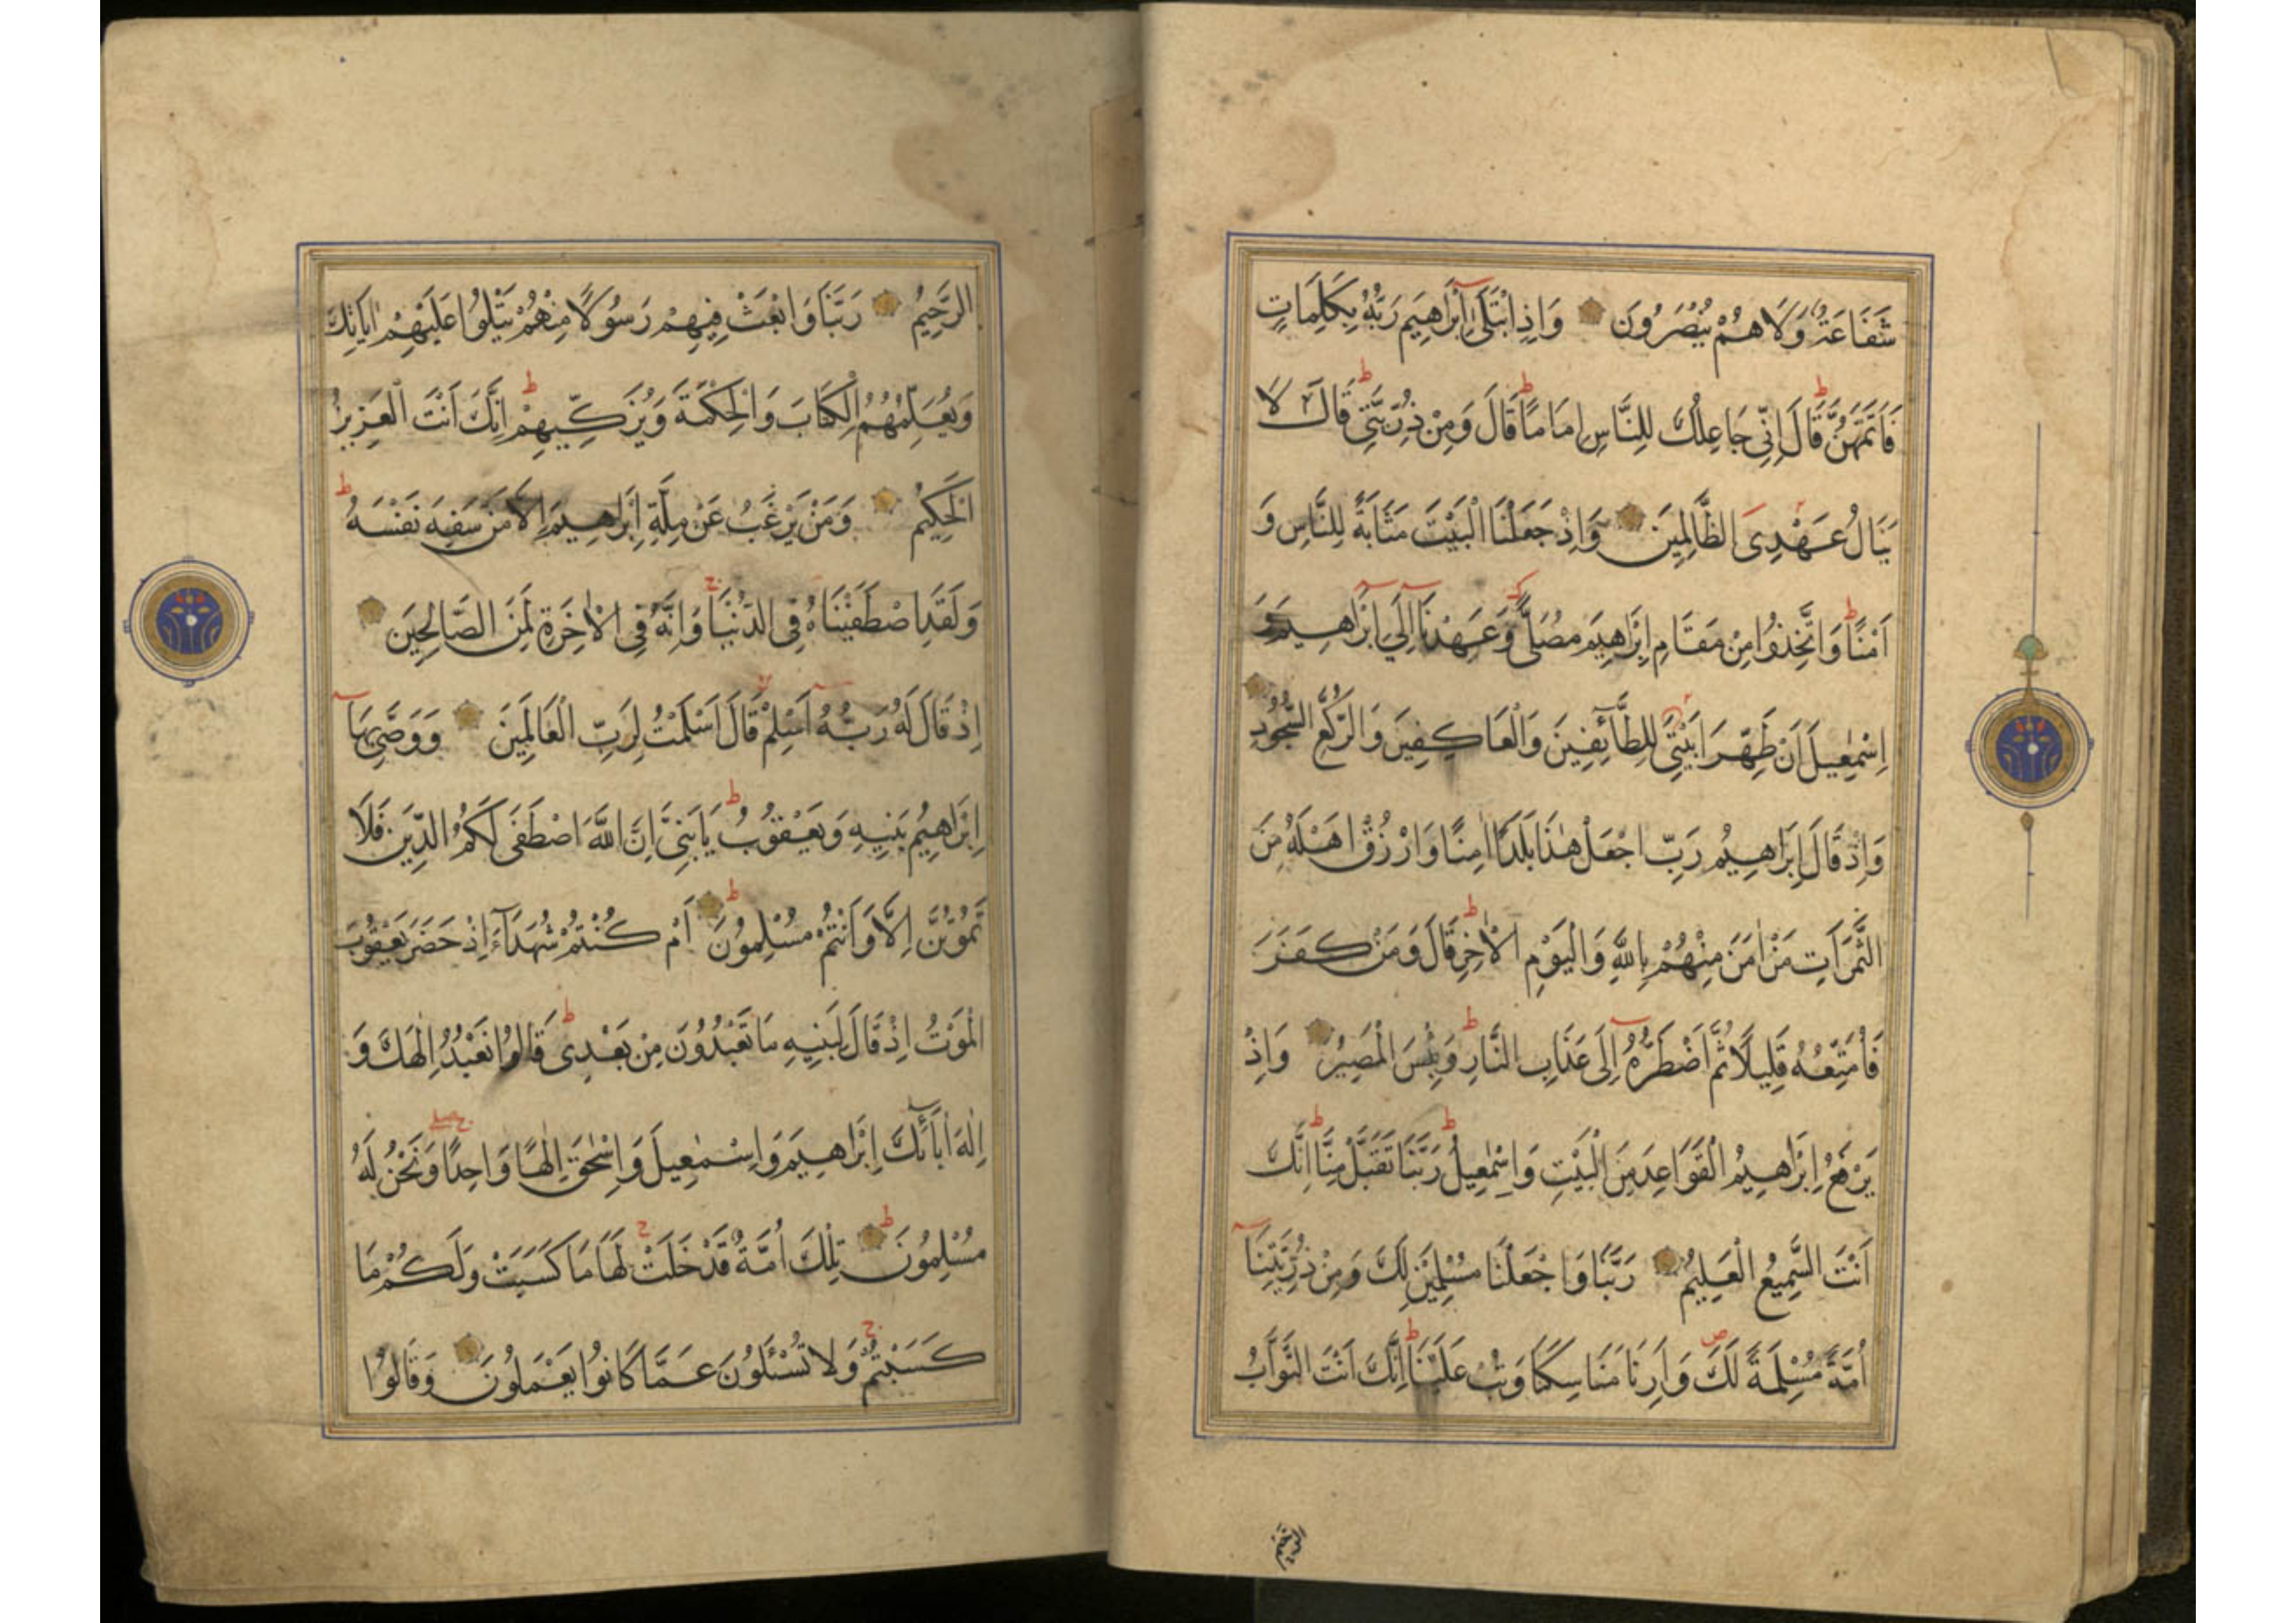 شَفَاعَةٌ وَلَا هُمْ يُنْصَرُونَ وَاِذِ ابْتَلٰٓى اِبْرَاهِيمَ رَبُّهُ بِكَلِمَاتٍ
فَاَتَمَّهُنَّ ط قَالَ اِنِّي جَاعِلُكَ لِلنَّاسِ اِمَامًا ط قَالَ وَمِنْ ذُرِّيَّتِي ط قَالَ لَا
يَنَالُ عَهْدِى الظَّالِمِينَ وَاِذْ جَعَلْنَا الْبَيْتَ مَثَابَةً لِلنَّاسِ وَ
اَمْنًا ط وَاتَّخِذُوا مِنْ مَقَامِ اِبْرَاهِيمَ مُصَلًّى وَعَهِدْنَٓا اِلٰٓى اِبْرَاهِيمَ وَ
اِسْمٰعِيلَ اَنْ طَهِّرَا بَيْتِيَ لِلطَّٓائِفِينَ وَالْعَاكِفِينَ وَالرُّكَّعِ السُّجُودِ
وَاِذْ قَالَ اِبْرَاهِيمُ رَبِّ اجْعَلْ هٰذَا بَلَدًا اٰمِنًا وَارْزُقْ اَهْلَهُ مِنَ
الثَّمَرَاتِ مَنْ اٰمَنَ مِنْهُمْ بِاللّٰهِ وَالْيَوْمِ الْاٰخِرِ ط قَالَ وَمَنْ كَفَرَ
فَاُمَتِّعُهُ قَلِيلًا ثُمَّ اَضْطَرُّهُٓ اِلَى عَذَابِ النَّارِ ط وَبِئْسَ الْمَصِيرُ وَاِذْ
يَرْفَعُ اِبْرَاهِيمُ الْقَوَاعِدَ مِنَ الْبَيْتِ وَاِسْمٰعِيلُ ط رَبَّنَا تَقَبَّلْ مِنَّا ط اِنَّكَ
اَنْتَ السَّمِيعُ الْعَلِيمُ رَبَّنَا وَاجْعَلْنَا مُسْلِمَيْنِ لَكَ وَمِنْ ذُرِّيَّتِنَٓا
اُمَّةً مُسْلِمَةً لَكَ ص وَاَرِنَا مَنَاسِكَنَا وَتُبْ عَلَيْنَا ط اِنَّكَ اَنْتَ التَّوَّابُ
الرحيم
الرَّحِيمُ رَبَّنَا وَابْعَثْ فِيهِمْ رَسُولًا مِنْهُمْ يَتْلُوا عَلَيْهِمْ اٰيَاتِكَ
وَيُعَلِّمُهُمُ الْكِتَابَ وَالْحِكْمَةَ وَيُزَكِّيهِمْ ط اِنَّكَ اَنْتَ الْعَزِيزُ
الْحَكِيمُ وَمَنْ يَرْغَبُ عَنْ مِلَّةِ اِبْرَاهِيمَ اِلَّا مَنْ سَفِهَ نَفْسَهُ ط
وَلَقَدِ اصْطَفَيْنَاهُ فِى الدُّنْيَا ج وَاِنَّهُ فِى الْاٰخِرَةِ لَمِنَ الصَّالِحِينَ
اِذْ قَالَ لَهُ رَبُّهُٓ اَسْلِمْ لا قَالَ اَسْلَمْتُ لِرَبِّ الْعَالَمِينَ وَوَصّٰى بِهَٓا
اِبْرَاهِيمُ بَنِيهِ وَيَعْقُوبُ ط يَابَنِىَّ اِنَّ اللّٰهَ اصْطَفَى لَكُمُ الدِّينَ فَلَا
تَمُوتُنَّ اِلَّا وَاَنْتُمْ مُسْلِمُونَ ط اَمْ كُنْتُمْ شُهَدَٓاءَ اِذْ حَضَرَ يَعْقُوبَ
الْمَوْتُ اِذْ قَالَ لِبَنِيهِ مَا تَعْبُدُونَ مِنْ بَعْدِى ط قَالُوا نَعْبُدُ اِلٰهَكَ وَ
اِلٰهَ اٰبَٓائِكَ اِبْرَاهِيمَ وَاِسْمٰعِيلَ وَاِسْحٰقَ اِلٰهًا وَاحِدًا ج صلے وَنَحْنُ لَهُ
مُسْلِمُونَ ط تِلْكَ اُمَّةٌ قَدْ خَلَتْ ج لَهَا مَا كَسَبَتْ وَلَكُمْ مَا
كَسَبْتُمْ ج وَلَا تُسْئَلُونَ عَمَّا كَانُوا يَعْمَلُونَ وَقَالُوا